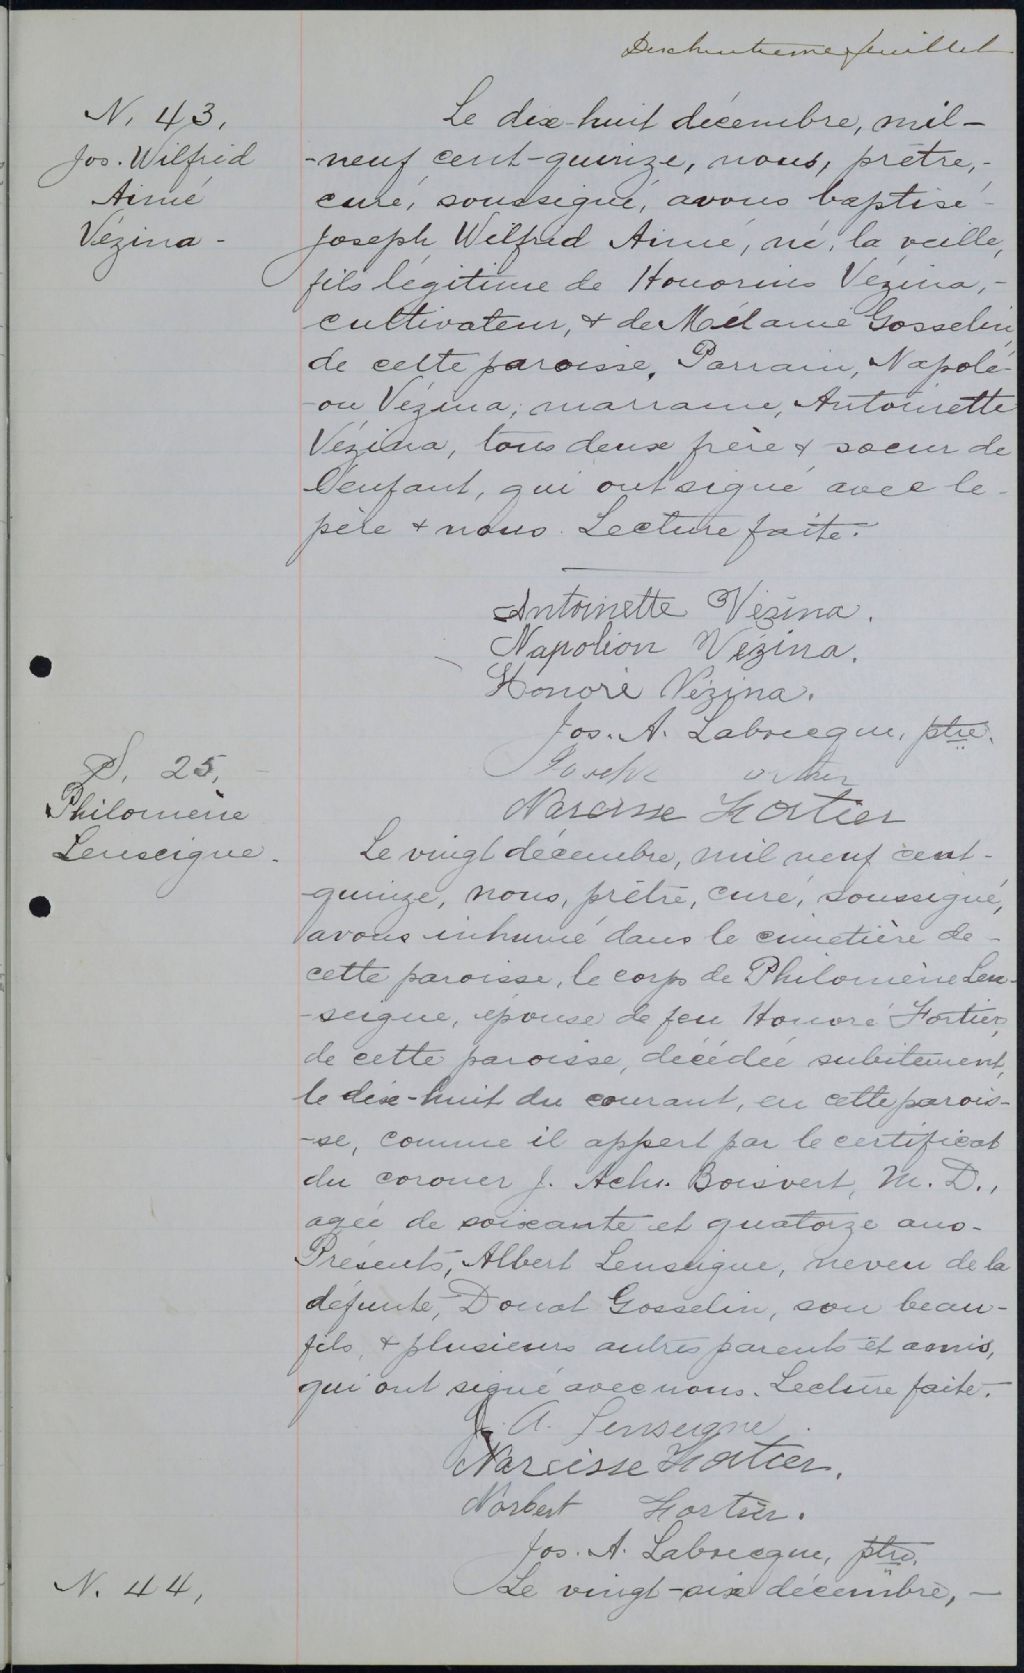 Dix huitième feuillet
N. 43,
Jos. Wilfrid
Aimé
Vézina -
Le dix-huit décembre, mil-
-neuf cent-quinze, nous, prêtre,-
curé, soussigné, avons baptisé -
Joseph Wilfrid Aimé, né, la veille,
fils légitime de Honorius Vézina,-
cultivateur, & de Mélanie Gosselin,
de cette paroisse. Parrain, Napolé-
-on Vézina; marraine, Antoinette
Vézina, tous deux frère & soeur de
l'enfant, qui ont signé avec le -
père & nous. Lecture faite.
Antoinette Vézina.
Napoléon Vézina.
Honoré Vézina.
Jos. A. Labrecque, ptre.
S. 25,
Philomène
Lenseigne.
Joseph
Narcisse Fortier
Le vingt décembre, mil neuf cent-
-quinze, nous, prêtre, curé, soussigné,
avons inhumé dans le cimetière de -
cette paroisse, le corps de Philomène Len-
-seigne, épouse de feu Honoré Fortier,
de cette paroisse, décédée subitement,
le dix-huit du courant, en cette parois-
-se, comme il appert par le certificat
du coroner J. Ach. Boisvert, M. D.,
agée de soixante et quatorze ans.
Présents, Albert Lenseigne, neveu de la
défunte, Donat Gosselin, son beau-
fils, & plusieurs autres parents et amis,
qui ont signé avec nous. Lecture faite.
J. A. Lenseigne.
Narcisse Fortier.
Norbert Fortier.
Jos. A. Labrecque, ptre.
N. 44,
Le vingt-six décembre, -